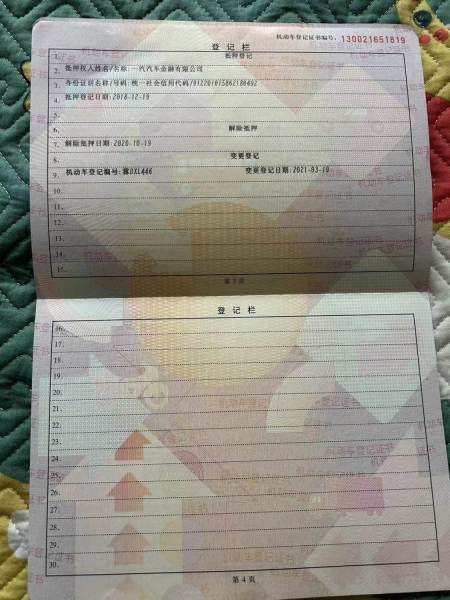 机动车登记证书编号：130021651819
登记栏
1. 抵押登记
2. 抵押权人姓名/名称:一汽汽车金融有限公司
3. 身份证明名称/号码:统一社会信用代码/912201015862180492
4. 抵押登记日期:2018-12-19
5.
6. 解除抵押
7. 解除抵押日期:2020-10-19
8. 变更登记
9. 机动车登记编号:冀DXL446 变更登记日期:2021-03-19
10.
11.
12.
13.
14.
15.
第 3 页
登记栏
16.
17.
18.
19.
20.
21.
22.
23.
24.
25.
26.
27.
28.
29.
30.
第 4 页